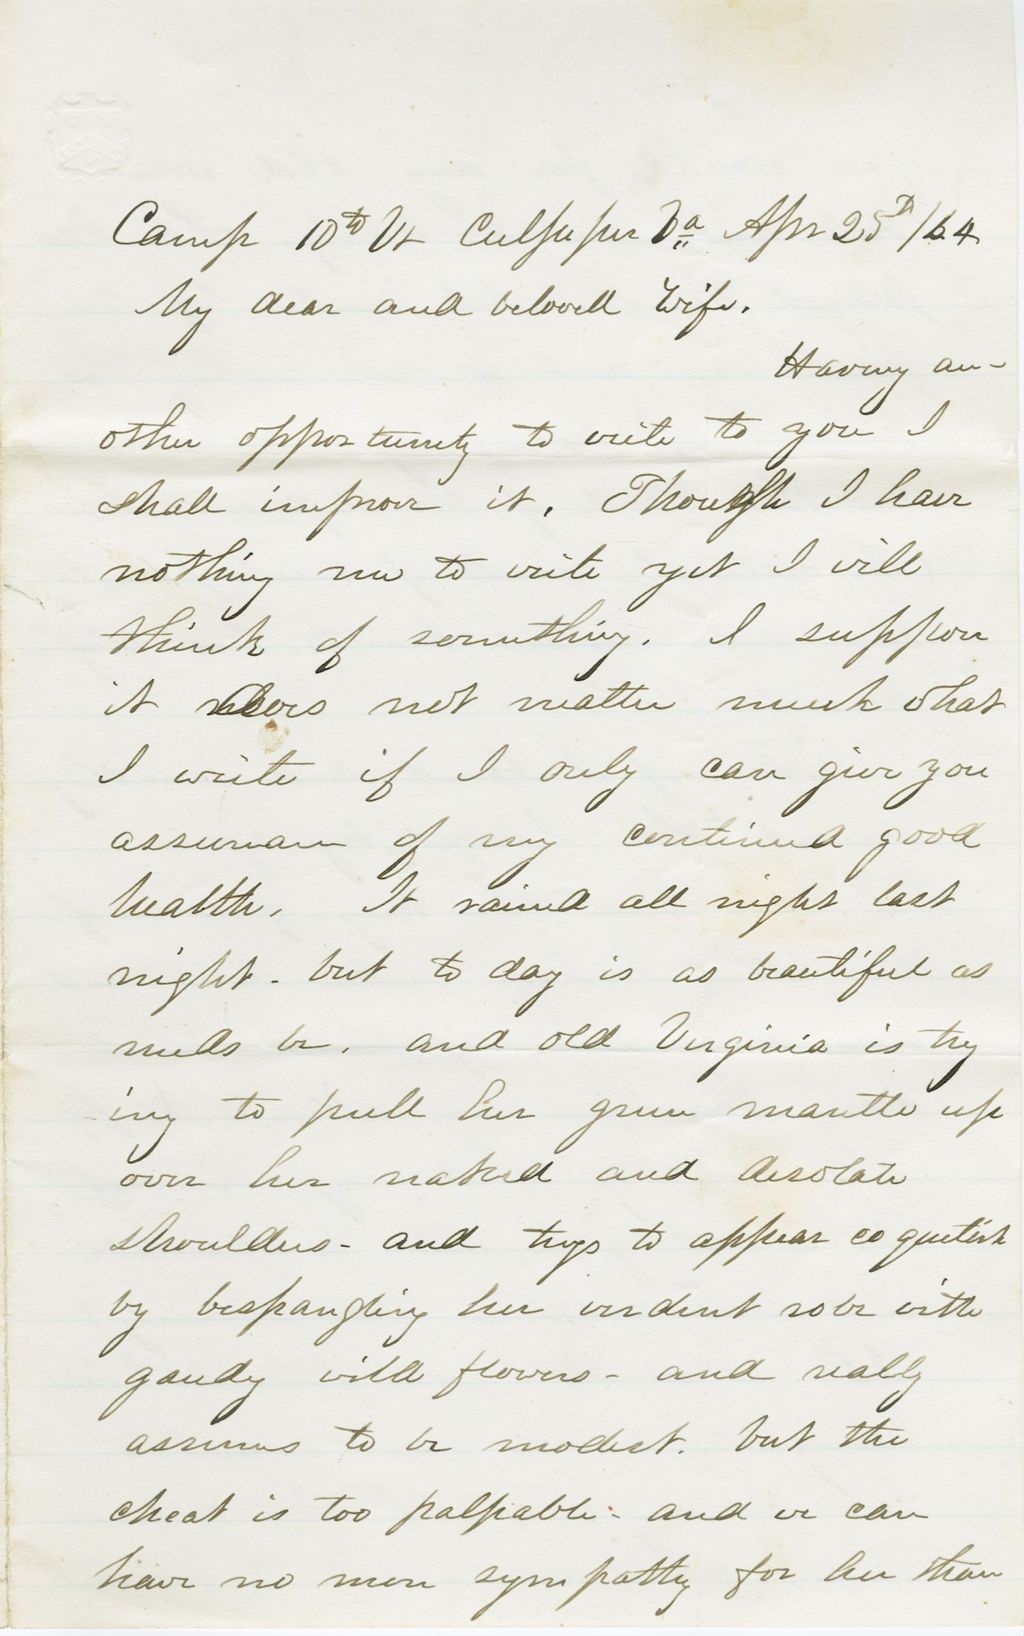 Camp 10th Vt Culpeper Va Apr 25th/64
My dear and beloved Wife.
Having an-
other opportunity to write to you I
shall improve it. Though I have
nothing new to write yet I will
think of something. I suppose
it does not matter much what
I write if I only can give you
assurance of my continued good
health. It rained all night last
night - but to day is as beautiful as
needs be. and old Virginia is try
ing to pull her green mantle up
over her naked and desolate
shoulders - and trys to appear coquetish
by bespangling her verdent robe with
gaudy wild flowers - and really
assumes to be modest. but the
cheat is too palpable - and we can
have no more sympathy for her than